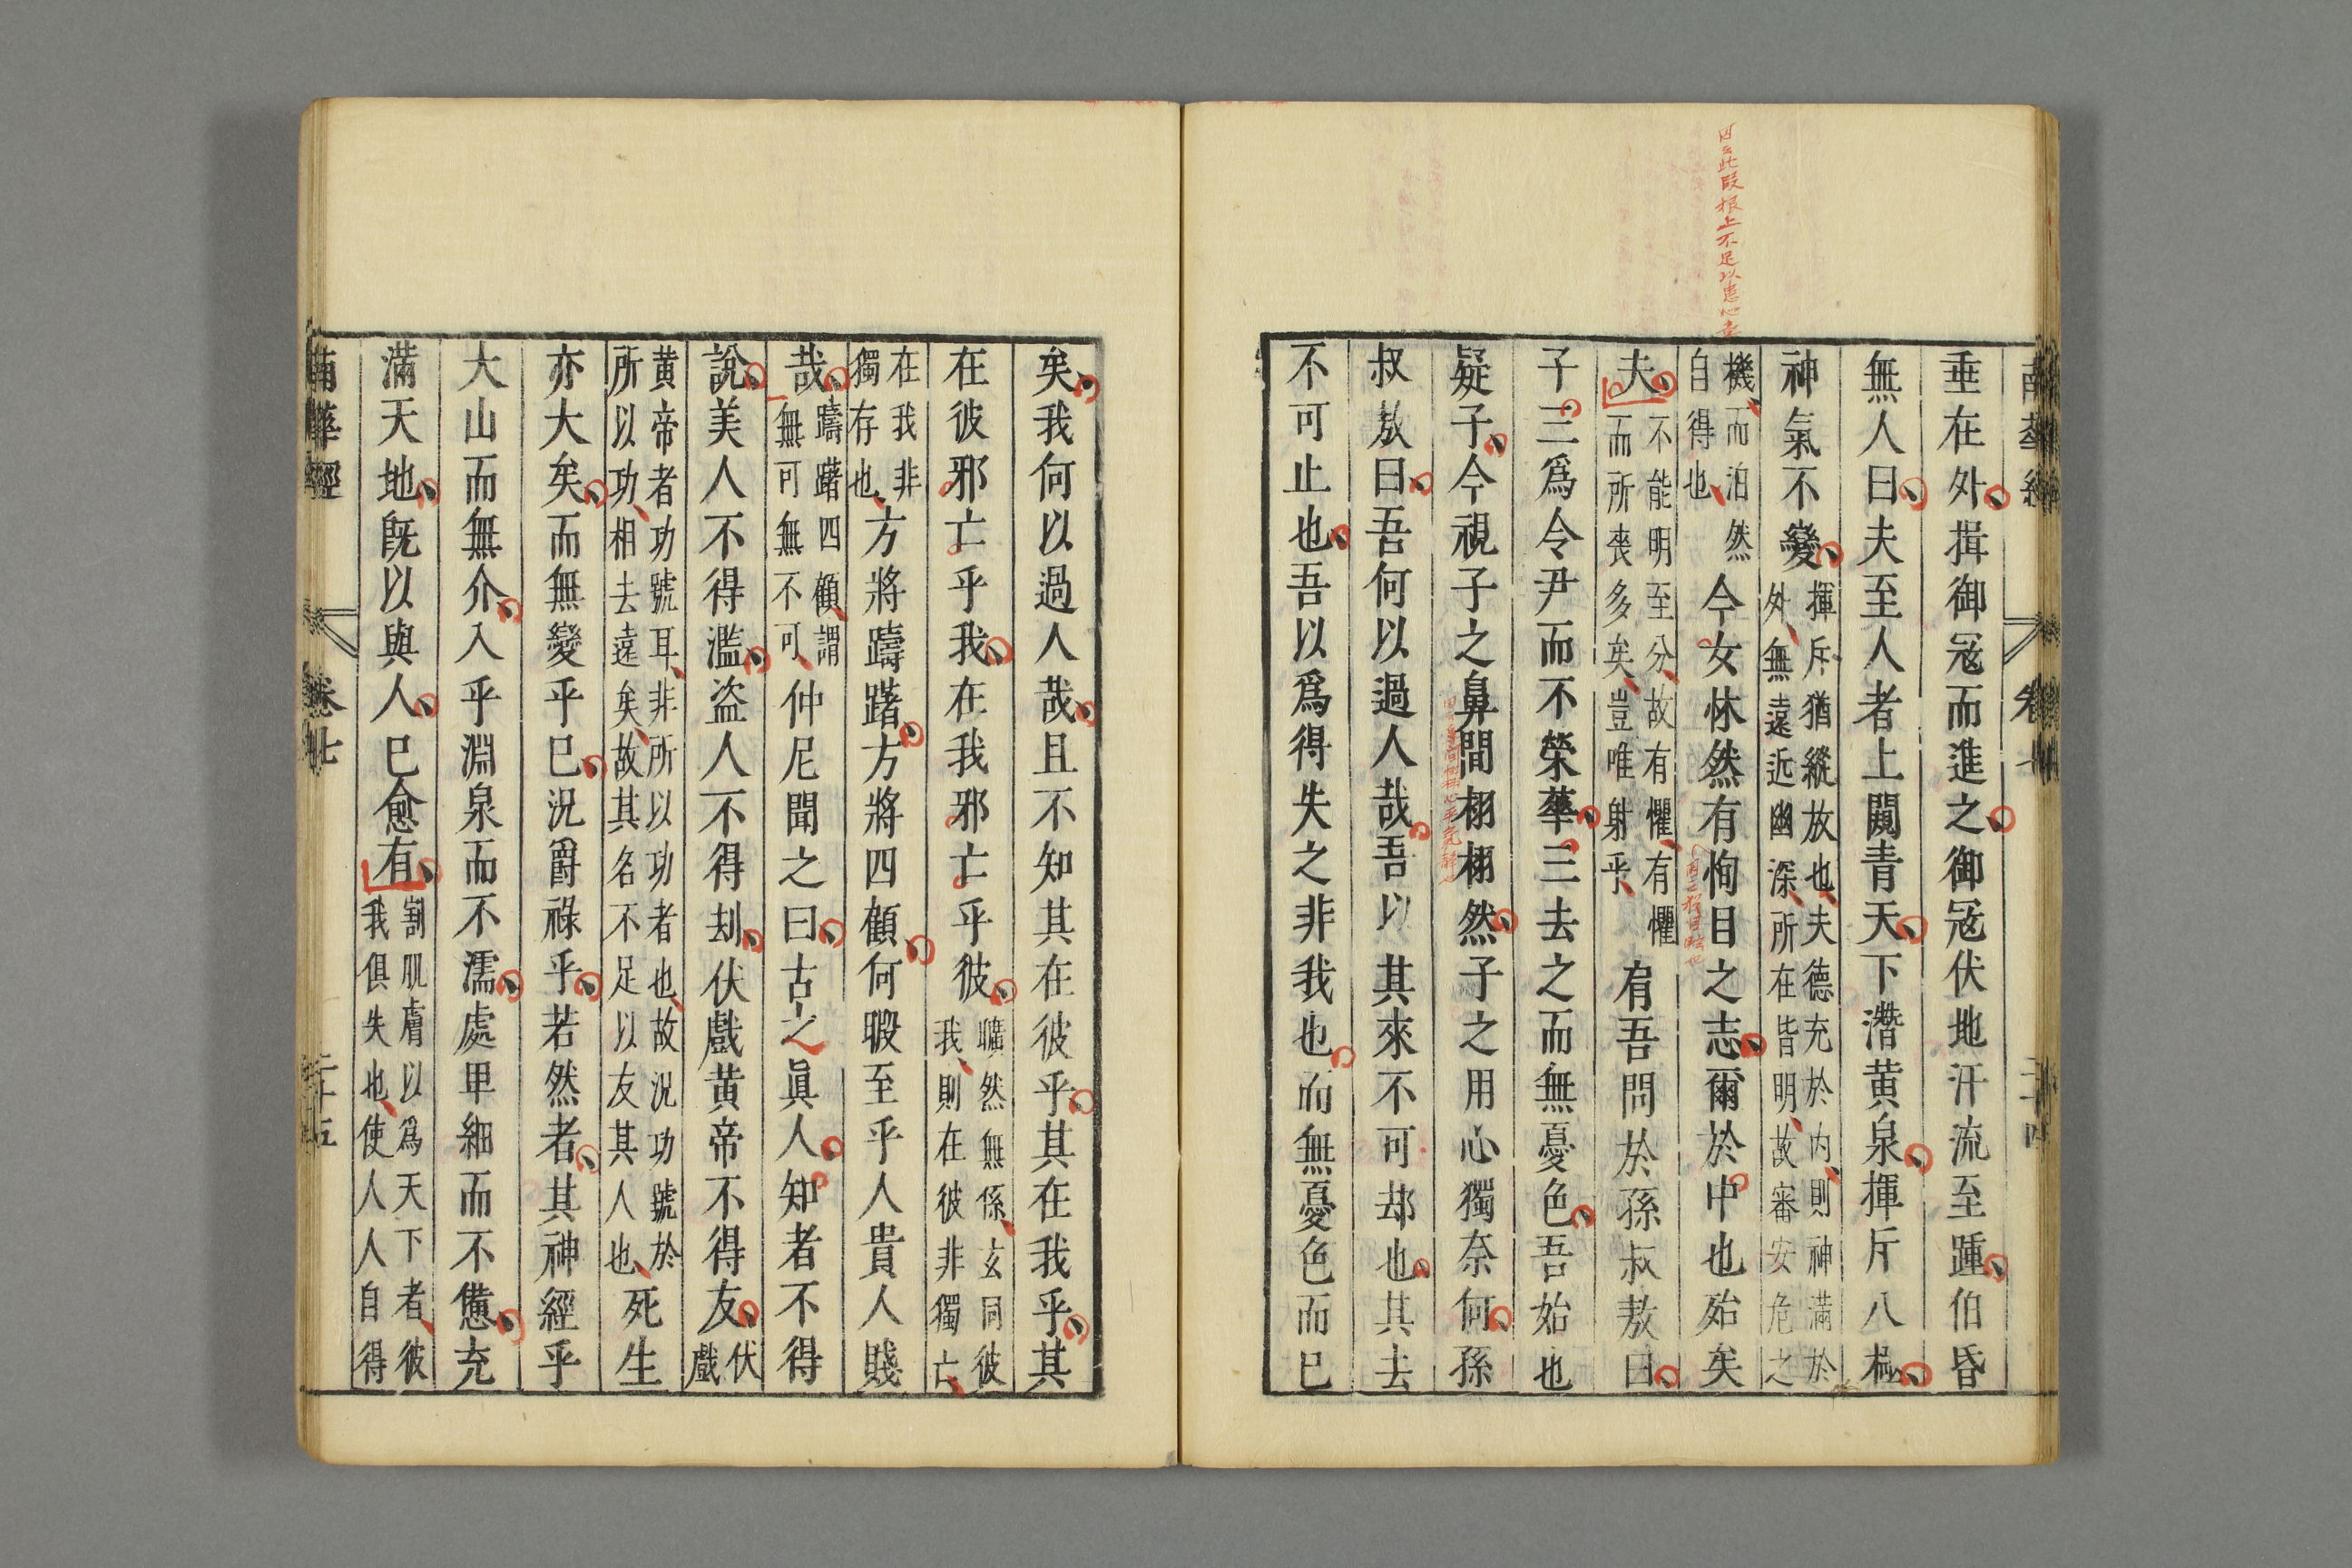 垂在外揖御寇而進之御寇伏地汗流至踵伯昏
無人曰夫至人者上闚青天下潛黄泉揮斥八極
神氣不變揮斥猶縱放也夫德充於内則神滿於
外無遠近幽深所在皆明故審安危之
機而泊然
自得也今女怵然有恂目之志爾於中也殆矣
夫不能明至分故有懼有懼
而所喪多矣豈唯射乎肩吾問於孫叔敖曰
子三爲令尹而不榮華三去之而無憂色吾始也
疑子今視子之鼻間栩栩然子之用心獨奈何孫
叔敖曰吾何以過人哉吾以其來不可却也其去
不可止也吾以爲得失之非我也而無憂色而已
因云此段根上不足以患心来
矣我何以過人哉且不知其在彼乎其在我乎其
在彼邪亡乎我在我邪亡乎彼曠然無係玄同彼
我則在彼非獨亡
在我非
獨存也方將躊躇方將四顧何暇至乎人貴人賤
哉躊躇四顧謂
無可無不可仲尼聞之曰古之眞人知者不得
說美人不得濫盗人不得刦伏戲黄帝不得友伏
戲
黄帝者功號耳非所以功者也故況功號於
所以功相去遠矣故其名不足以友其人也死生
亦大矣而無變乎已況爵祿乎若然者其神經乎
大山而無介入乎淵泉而不濡處卑細而不憊充
滿天地既以與人已愈有割肌膚以爲天下者彼
我俱失也使人人自得
南華經 卷七 二十五